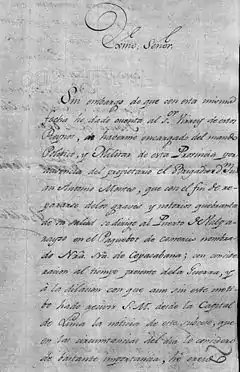 Exmo. Señor.
Sin embargo de que con esta misma
fecha he dado cuenta al Sor. Virrey de estos
Reynos, de haberme encargado del mando
Politico, y Militar de esta Provincia por
ausencia del propietario el Brigadier Dn.
Juan Antonio Montes, que con el fin de re-
pararse de los graves y notorios quebrantos
de su salud se dirige al Puerto de
en el Paquebot de nombra-
do Nra. Sra. de Copacabana; con consider-
acion al tiempo presente de la Guerra, y
à la dilacion con que aun sin este moti-
bo hade recivir S.M. desde la Capital
de Lima la noticia de este suceso, que
en las circunstancias del dia le considero
de bastante importancia, he creido